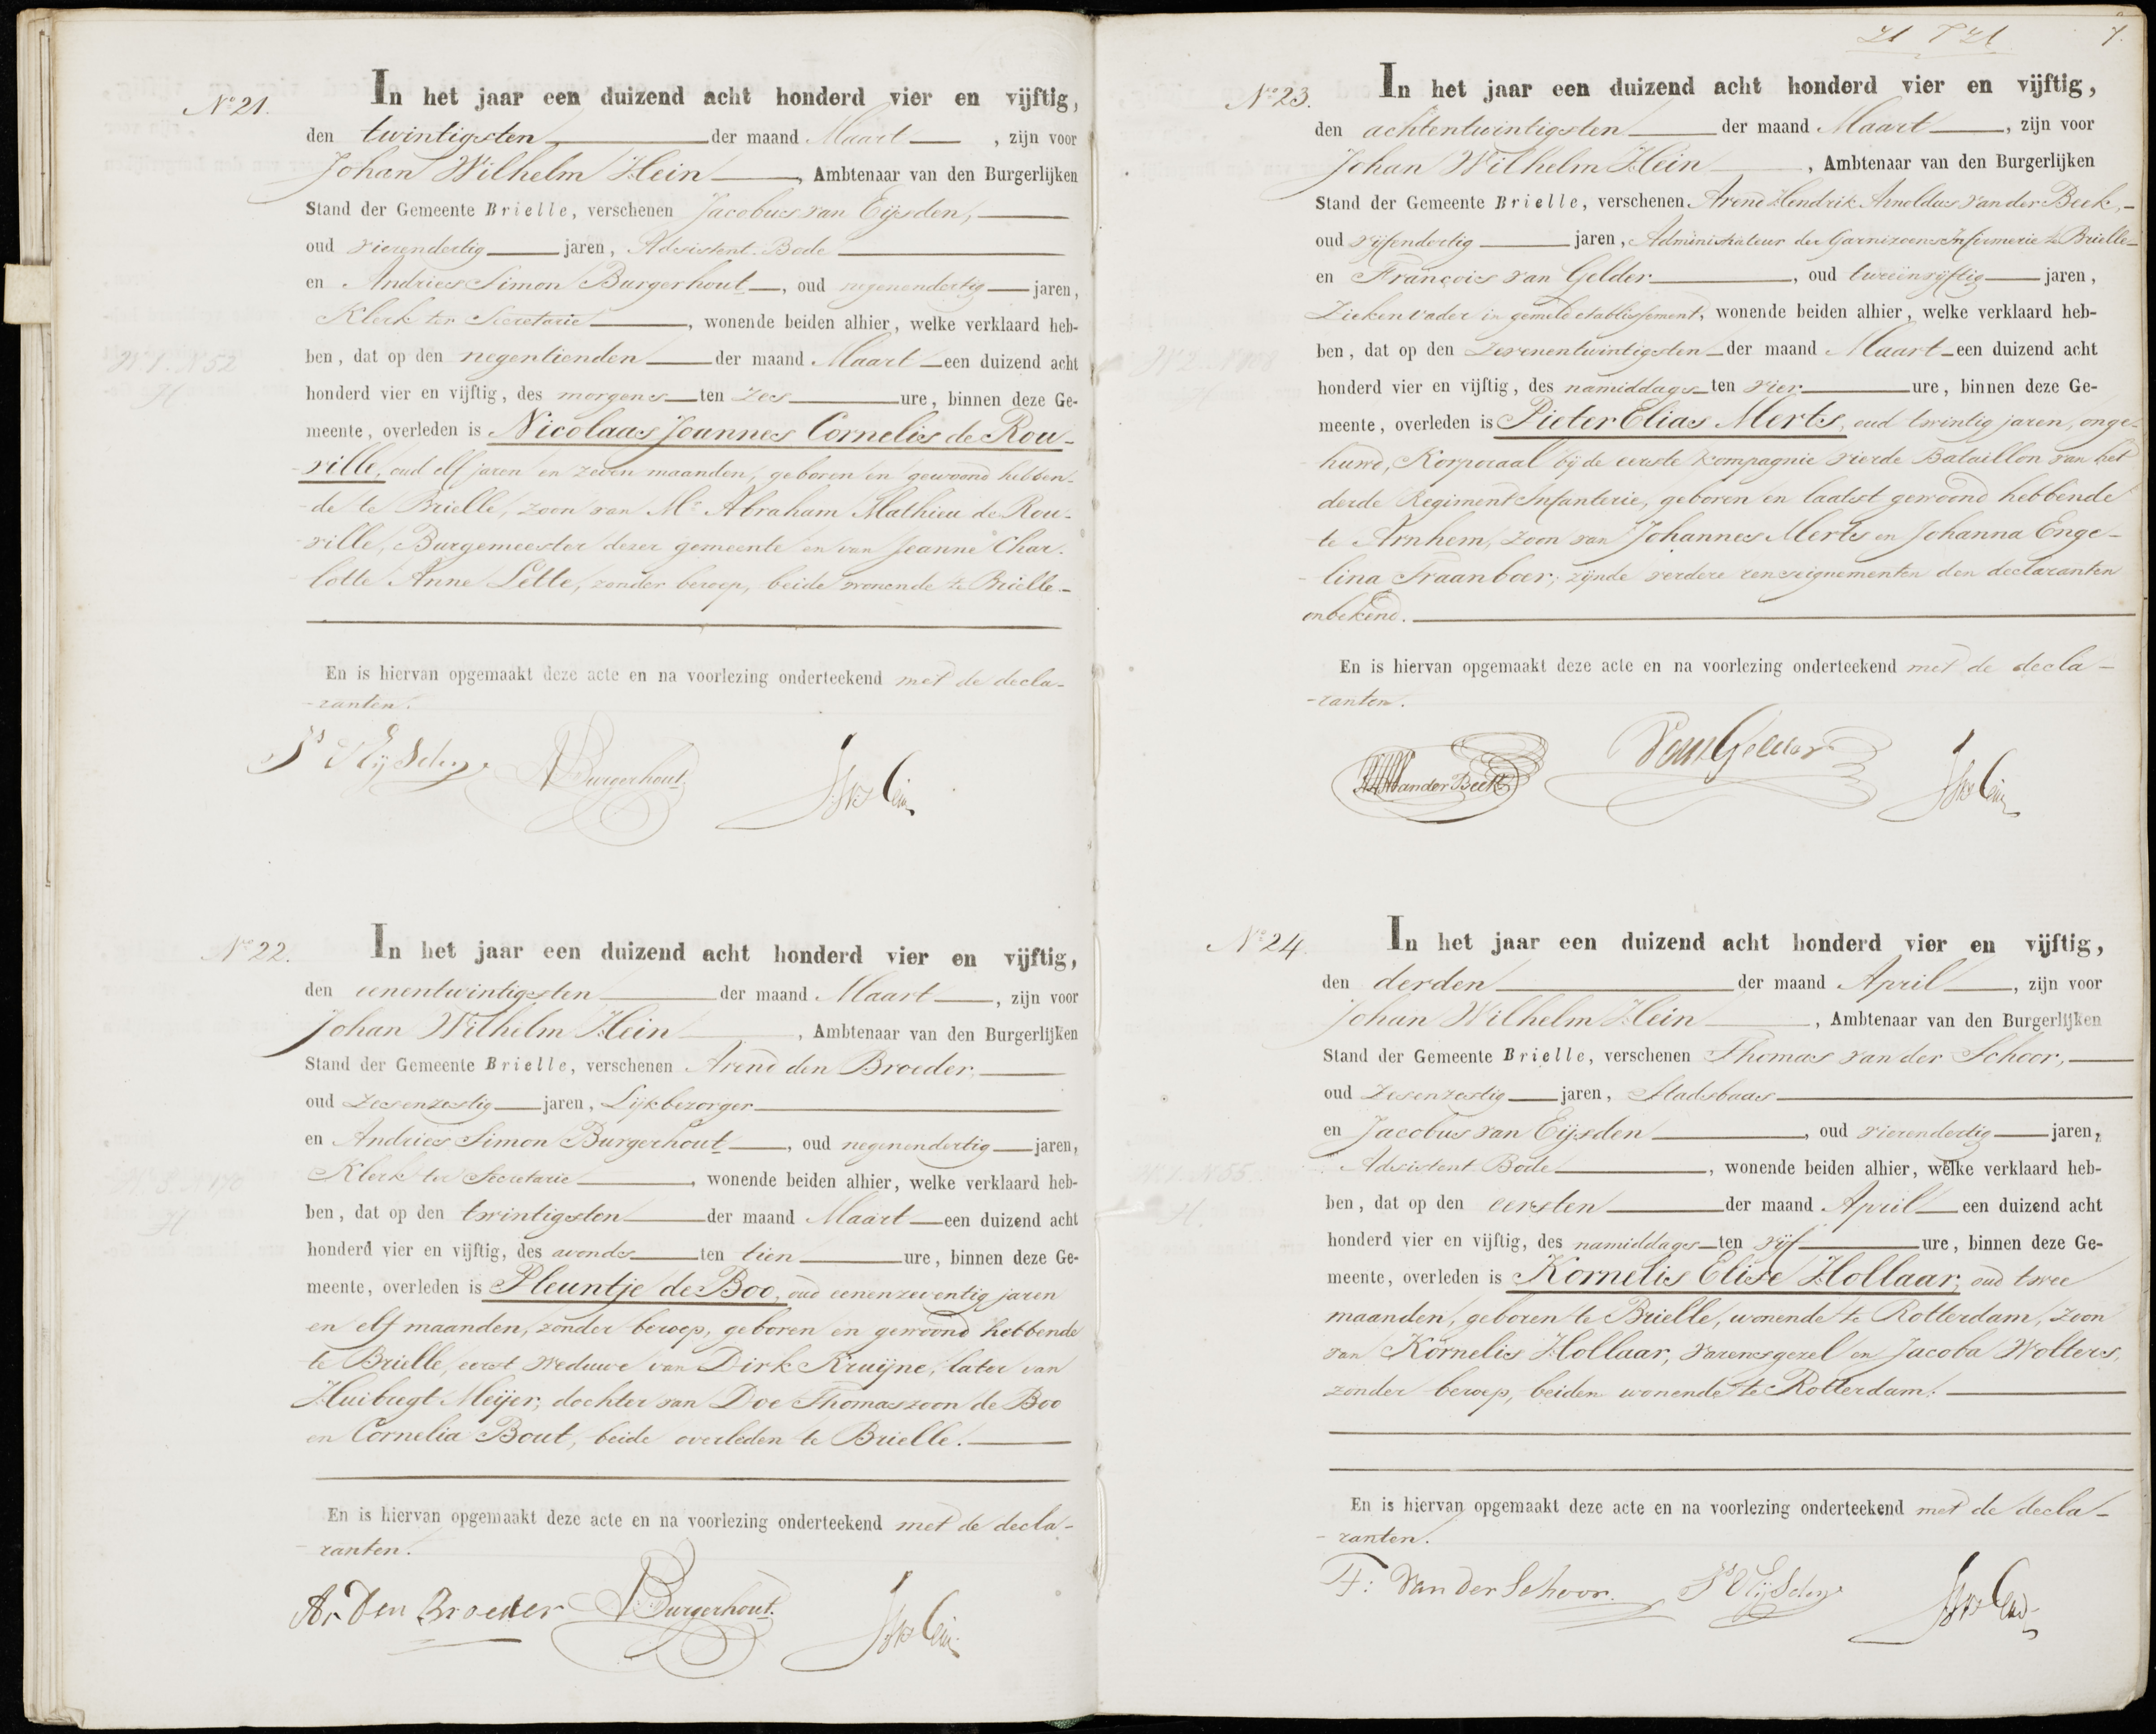 No 21.
In het jaar een duizend acht honderd vier en vijftig,
den twintigsten der maand Maart, zijn voor
Johan Wilhelm Hein, Ambtenaar van den Burgerlijken
Stand der Gemeente Brielle, verschenen Jacobus van Eijsden,
oud vierendertig jaren, Adsistent-Bode
en Andries Simon Burgerhout, oud negenendertig jaren,
Klerk ter Secretarie, wonende beiden alhier, welke verklaard heb-
ben, dat op den negentienden der maand Maart een duizend acht
honderd vier en vijftig, des morgens ten zes ure, binnen deze Ge-
meente, overleden is Nicolaas Joannes Cornelis de Rou-
ville, oud elf jaren en zeven maanden, geboren en gewoond hebben-
de te Brielle, zoon van Mr Abraham Mathieu de Rou-
ville, Burgemeester dezer gemeente en van Jeanne Char-
lotte Anne Lette, zonder beroep, beide wonende te Brielle.
En is hiervan opgemaakt deze acte en na voorlezing onderteekend met de decla-
-ranten.
Js V Eijsden
ABurgerhout
JWHein
No 22.
In het jaar een duizend acht honderd vier en vijftig,
den eenentwintigsten der maand Maart, zijn voor
Johan Wilhelm Hein, Ambtenaar van den Burgerlijken
Stand der Gemeente Brielle, verschenen Arend den Broeder,
oud zesenzestig jaren, Lijkbezorger
en Andries Simon Burgerhout, oud negenendertig jaren,
Klerk ter Secretarie, wonende beiden alhier, welke verklaard heb-
ben, dat op den twintigsten der maand Maart een duizend acht
honderd vier en vijftig, des avonds ten tien ure, binnen deze Ge-
meente, overleden is Pleuntje de Boo, oud eenenzeventig jaren
en elf maanden, zonder beroep, geboren en gewoond hebbende
te Brielle, eerst weduwe van Dirk Kruijne, later van
Huibregt Meijer, dochter van Doe Thomaszoon de Boo
en Cornelia Bout, beide overleden te Brielle.
En is hiervan opgemaakt deze acte en na voorlezing onderteekend met de decla-
-ranten.
Ar Den Broeder
ABurgerhout
JWHein
7.
No 23.
In het jaar een duizend acht honderd vier en vijftig,
den achtentwintigsten der maand Maart, zijn voor
Johan Wilhelm Hein, Ambtenaar van den Burgerlijken
Stand der Gemeente Brielle, verschenen Arend Hendrik Arnoldus van der Beek,
oud vijfendertig jaren, Administrateur der Garnizoens Infirmerie te Brielle
en François van Gelder, oud tweeenvijftig jaren,
Ziekenvader in gemeld etablissement, wonende beiden alhier, welke verklaard heb-
ben, dat op den zevenentwintigsten der maand Maart een duizend acht
honderd vier en vijftig, des namiddags ten vier ure, binnen deze Ge-
meente, overleden is Pieter Elias Merts, oud twintig jaren, onge-
huwd, Korporaal bij de eerste kompagnie vierde Bataillon van het
derde Regiment Infanterie, geboren en laatst gewoond hebbende
te Arnhem, zoon van Johannes Merts en Johanna Enge-
lina Fraanboer; zijnde verdere renseignementen den declaranten
onbekend.
En is hiervan opgemaakt deze acte en na voorlezing onderteekend met de decla-
-ranten.
AHAvanderBeek
Van Gelder
JWHein
No 24.
In het jaar een duizend acht honderd vier en vijftig,
den derden der maand April, zijn voor
Johan Wilhelm Hein, Ambtenaar van den Burgerlijken
Stand der Gemeente Brielle, verschenen Thomas van der Schoor,
oud zesenzestig jaren, Stadsbaas
en Jacobus van Eijsden, oud vierendertig jaren,
Adsistent Bode, wonende beiden alhier, welke verklaard heb-
ben, dat op den eersten der maand April een duizend acht
honderd vier en vijftig, des namiddags ten vijf ure, binnen deze Ge-
meente, overleden is Kornelis Elise Hollaar, oud twee
maanden, geboren te Brielle, wonende te Rotterdam, zoon
van Kornelis Hollaar, varensgezel en Jacoba Wolters,
zonder beroep, beiden wonende te Rotterdam.
En is hiervan opgemaakt deze acte en na voorlezing onderteekend met de decla-
-ranten.
T: Van der Schoor.
Js V Eijsden
JWHein